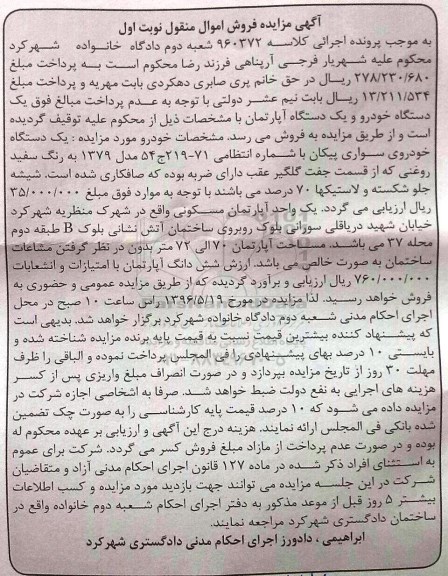 آگهی مزایده فروش اموال منقول نوبت اول
به موجب پرونده اجرائی کلاسه ۹۶۰۳۷۲ شعبه دوم دادگاه خانواده شهرکرد
محکوم علیه شهریار فرجی آرپناهی فرزند رضا محکوم است به پرداخت مبلغ
۲۷۸/۲۳۰/۶۸۰ ریال در حق خانم پری صابری دهکردی بابت مهریه و پرداخت مبلغ
۱۳/۲۱۱/۵۳۴ ریال بابت نیم عشر دولتی با توجه به عدم پرداخت مبالغ فوق یک
دستگاه خودرو و یک دستگاه آپارتمان با مشخصات ذیل از محکوم علیه توقیف گردیده
است و از طریق مزایده به فروش می رسد. مشخصات خودرو مورد مزایده : یک دستگاه
خودروی سواری پیکان با شماره انتظامی ۷۱-۲۱۹ج۵۴ مدل ۱۳۷۹ به رنگ سفید
روغنی که از قسمت جفت گلگیر عقب دارای ضربه بوده که صافکاری شده است. شیشه
جلو شکسته و لاستیکها ۷۰ درصد می باشند با توجه به موارد فوق مبلغ ۳۵/۰۰۰/۰۰۰
ریال ارزیابی می گردد. یک واحد آپارتمان مسکونی واقع در شهرک منظریه شهرکرد
خیابان شهید دریاقلی سورانی بلوک روبروی ساختمان آتش نشانی بلوک B طبقه دوم
محله ۳۷ می باشد. مساحت آپارتمان ۷۰ الی ۷۲ متر بدون در نظر گرفتن مشاعات
ساختمان به صورت خالص می باشد. ارزش شش دانگ آپارتمان با امتیازات و انشعابات
۷۶۰/۰۰۰/۰۰۰ ریال ارزیابی و برآورد گردیده که از طریق مزایده عمومی و حضوری به
فروش خواهد رسید. لذا مزایده در مورخ ۱۳۹۶/۵/۱۹ راس ساعت ۱۰ صبح در محل
اجرای احکام مدنی شعبه دوم دادگاه خانواده شهرکرد برگزار خواهد شد. بدیهی است
که پیشنهاد کننده بیشترین قیمت نسبت به قیمت پایه برنده مزایده شناخته شده و
بایستی ۱۰ درصد بهای پیشنهادی را فی المجلس پرداخت نموده و الباقی را ظرف
مهلت ۳۰ روز از تاریخ مزایده بپردازد و در صورت انصراف مبلغ واریزی پس از کسر
هزینه های اجرایی به نفع دولت ضبط خواهد شد. صرفا به اشخاصی اجازه شرکت در
مزایده داده می شود که ۱۰ درصد قیمت پایه کارشناسی را به صورت چک تضمین
شده بانکی فی المجلس ارائه نمایند. هزینه درج این آگهی و ارزیابی بر عهده محکوم له
بوده و در صورت عدم پرداخت از مازاد مبلغ فروش کسر می گردد. شرکت برای عموم
به استثنای افراد ذکر شده در ماده ۱۲۷ قانون اجرای احکام مدنی آزاد و متقاضیان
شرکت در این جلسه مزایده می توانند جهت بازدید مورد مزایده و کسب اطلاعات
بیشتر ۵ روز قبل از موعد مذکور به دفتر اجرای احکام شعبه دوم خانواده واقع در
ساختمان دادگستری شهرکرد مراجعه نمایند.
ابراهیمی ، دادورز اجرای احکام مدنی دادگستری شهرکرد